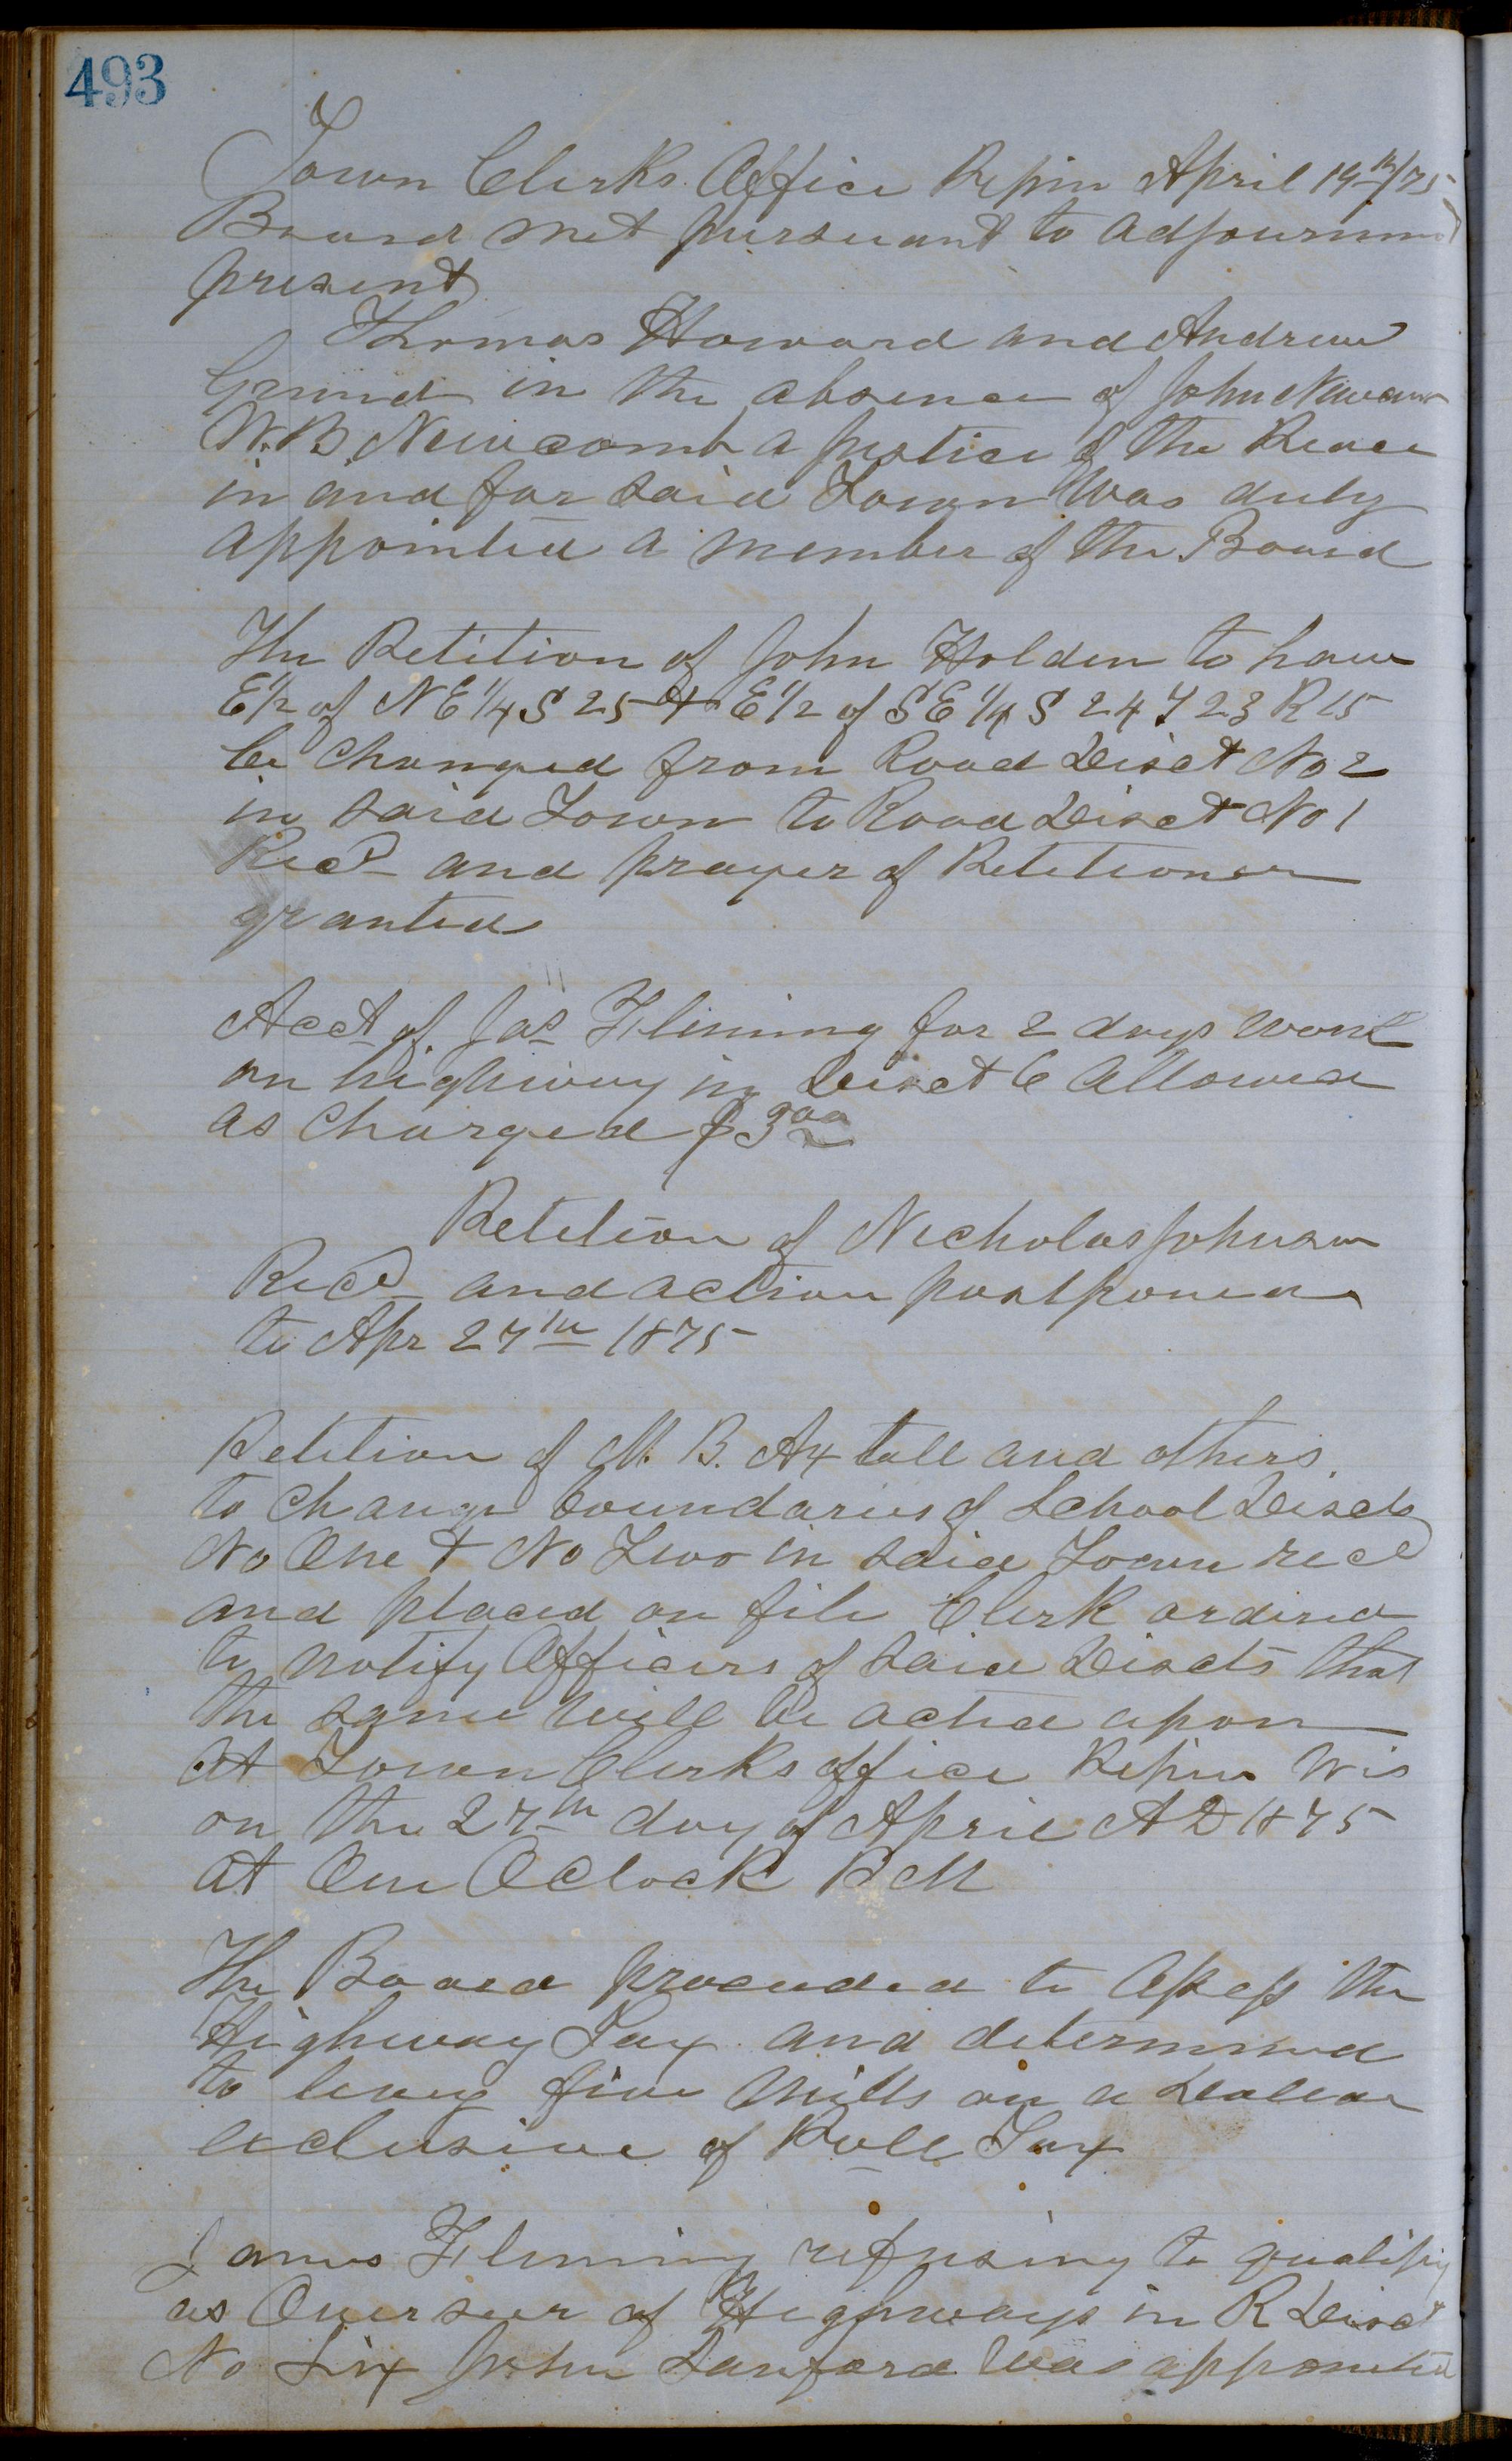 493
Town Clerks Office Pepin April 19th/75
Board met pursuant to adjournment
present
Thomas Howard and Andrew
in the absence of John
N. B. Newcomb a Justice of the Peace
in and for said Town was duly
appointed a member of the Board
The Petition of John Holden to have
E 1/2 of NE 1/4 S 25 & E 1/2 of SE 1/4 S 24 T 23 R 15
be changed from Road Disct No 2
in said Town to Road Disct No 1
Recd and prayer of Petitioner
granted
Acct of Jas Fleming for 2 days work
on highway in Disct 6 allowed
as charged $3.00
Petition of Nicholas Johnson
Recd and action postponed
to Apr 27th 1875
Petition of M. B. Axtell and others
to change boundaries of School Discts
No One & No Two in said Town recd
and placed on file Clerk ordered
to notify Officers of said Discts that
the same will be acted upon
at Town Clerks office Pepin Wis
on the 27th day of April A D 1875
at One O Clock P M
The Board proceeded to assess the
Highway Tax and determined
to levy five Mills on a Dollar
exclusive of Poll Tax
James Fleming refusing to qualify
as Overseer of Highways in R Disct
No Six John Sanford was appointed